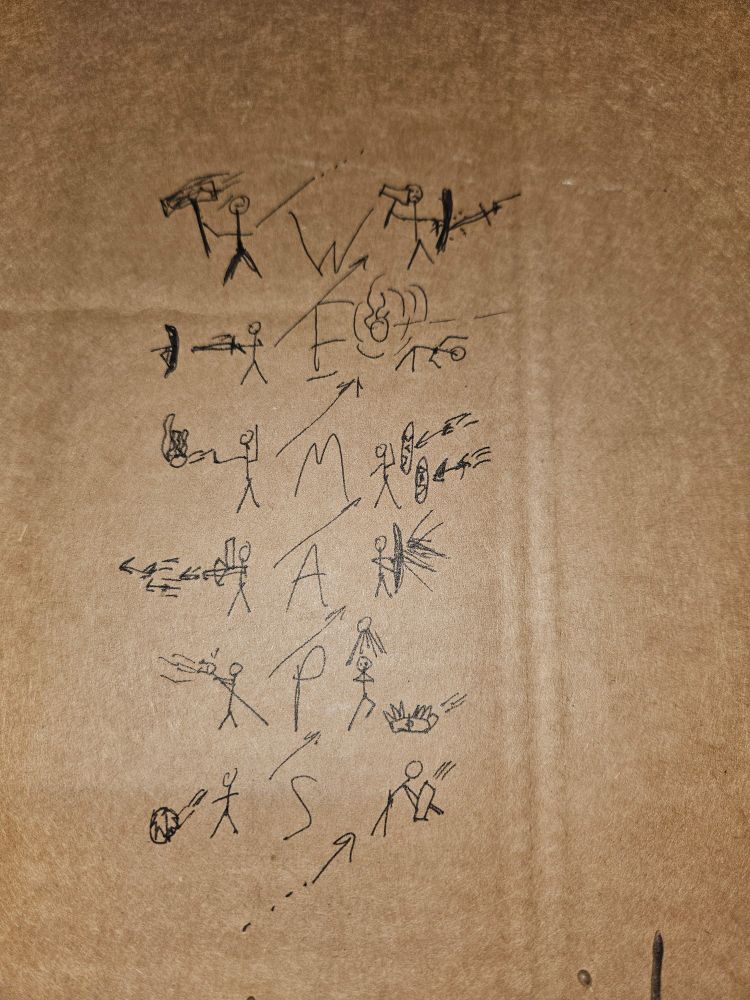 W
E
M
A
P
S